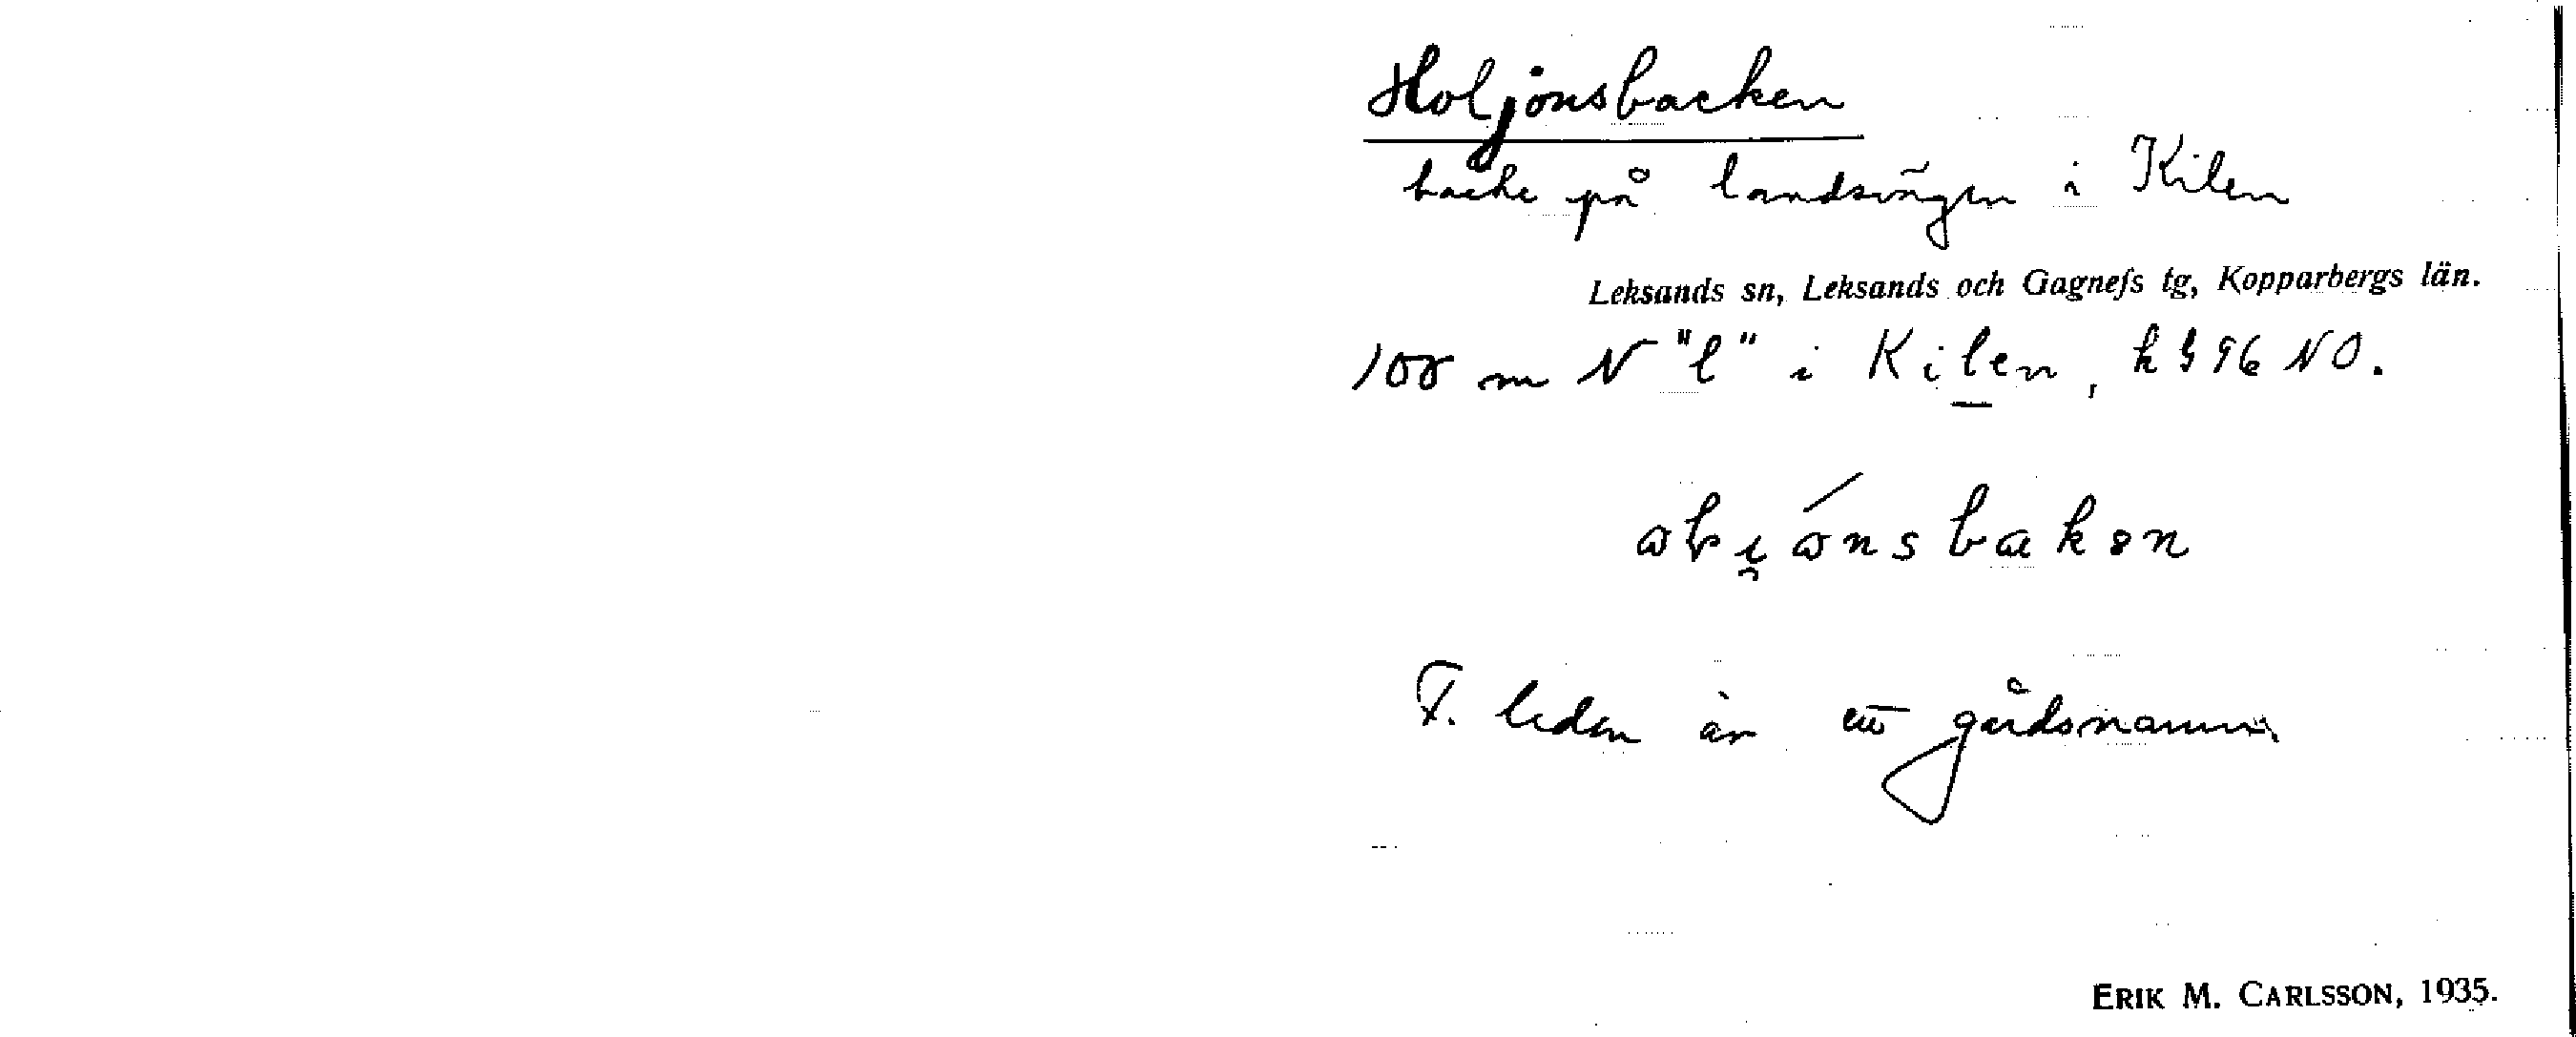 Holjönsbacken
backe på landsvägen i Kilen
Leksands sn, Leksands och Gagnefs tg, Kopparbergs län.
100 m N "l" i Kilen, k 96 NO.
F. leden är ett gårdsnamn
ERIK M. CARLSSON, 1935.